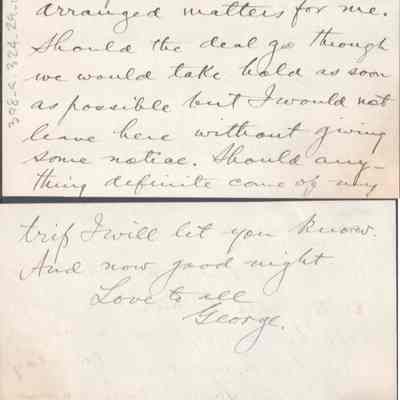 arranged matters for me.
Should the deal go through
we would take hold as soon
as possible but I would not
leave here without giving
some notice. Should any-
thing definite come of my
trip I will let you know.
And now good night
Love to all
George.